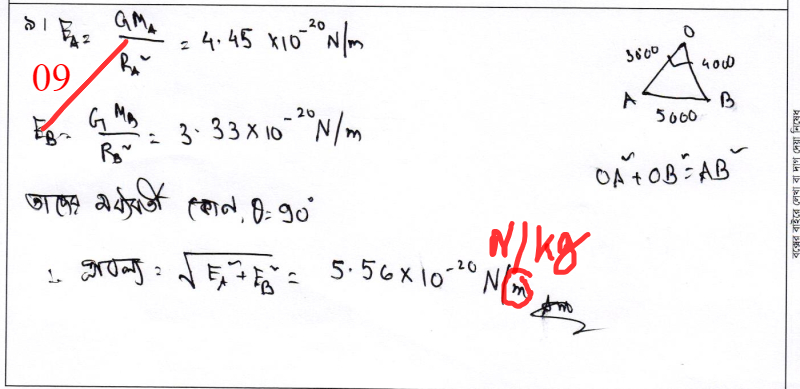 ৯। E_A = GM_A / R_A² = 4.45 × 10^-20 N/m
09
E_B = G M_B / R_B² = 3.33 × 10^-20 N/m
তাদের মধ্যবর্তী কোন, θ = 90°
∴ প্রাবল্য = √(E_A² + E_B²) = 5.56 × 10^-20 N/m
N/kg
Ans
O
3000
4000
A
B
5000
OA² + OB² = AB²
বক্সের বাইরে লেখা বা দাগ দেয়া নিষেধ